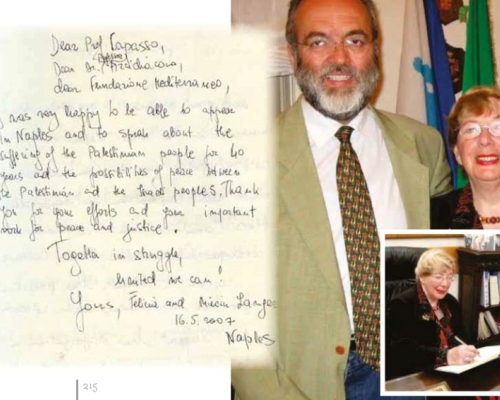 Dear Prof. Capasso,
Dear M.
dear Fundazione Mediterraneo,
I was very happy to be able to appear
in Naples and to speak about the
suffering of the Palestinian people for 40
years ad the possibilities of peace between
the Palestinian ad the Israeli peoples. Thank
You for your efforts and your important
work for peace and justice!
Together in struggle,
United we can!
Yours, Felicia and Langer
16.5.2007
Naples
215